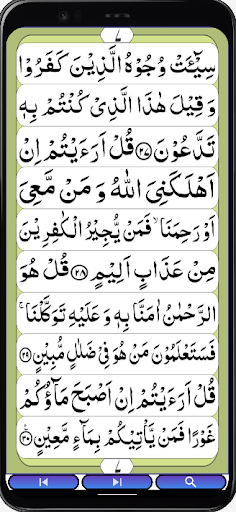 سِيْٓـَٔتْ وُجُوْهُ الَّذِيْنَ كَفَرُوْا
وَ قِيْلَ هٰذَا الَّذِيْ كُنْتُمْ بِهٖ
تَدَّعُوْنَ ﴿۲۷﴾ قُلْ اَرَءَيْتُمْ اِنْ
اَهْلَكَنِيَ اللّٰهُ وَ مَنْ مَّعِيَ
اَوْ رَحِمَنَا ۙ فَمَنْ يُّجِيْرُ الْكٰفِرِيْنَ
مِنْ عَذَابٍ اَلِيْمٍ ﴿۲۸﴾ قُلْ هُوَ
الرَّحْمٰنُ اٰمَنَّا بِهٖ وَ عَلَيْهِ تَوَكَّلْنَا ۚ
فَسَتَعْلَمُوْنَ مَنْ هُوَ فِيْ ضَلٰلٍ مُّبِيْنٍ ﴿۲۹﴾
قُلْ اَرَءَيْتُمْ اِنْ اَصْبَحَ مَآؤُكُمْ
غَوْرًا فَمَنْ يَّاْتِيْكُمْ بِمَآءٍ مَّعِيْنٍ ﴿۳۰﴾